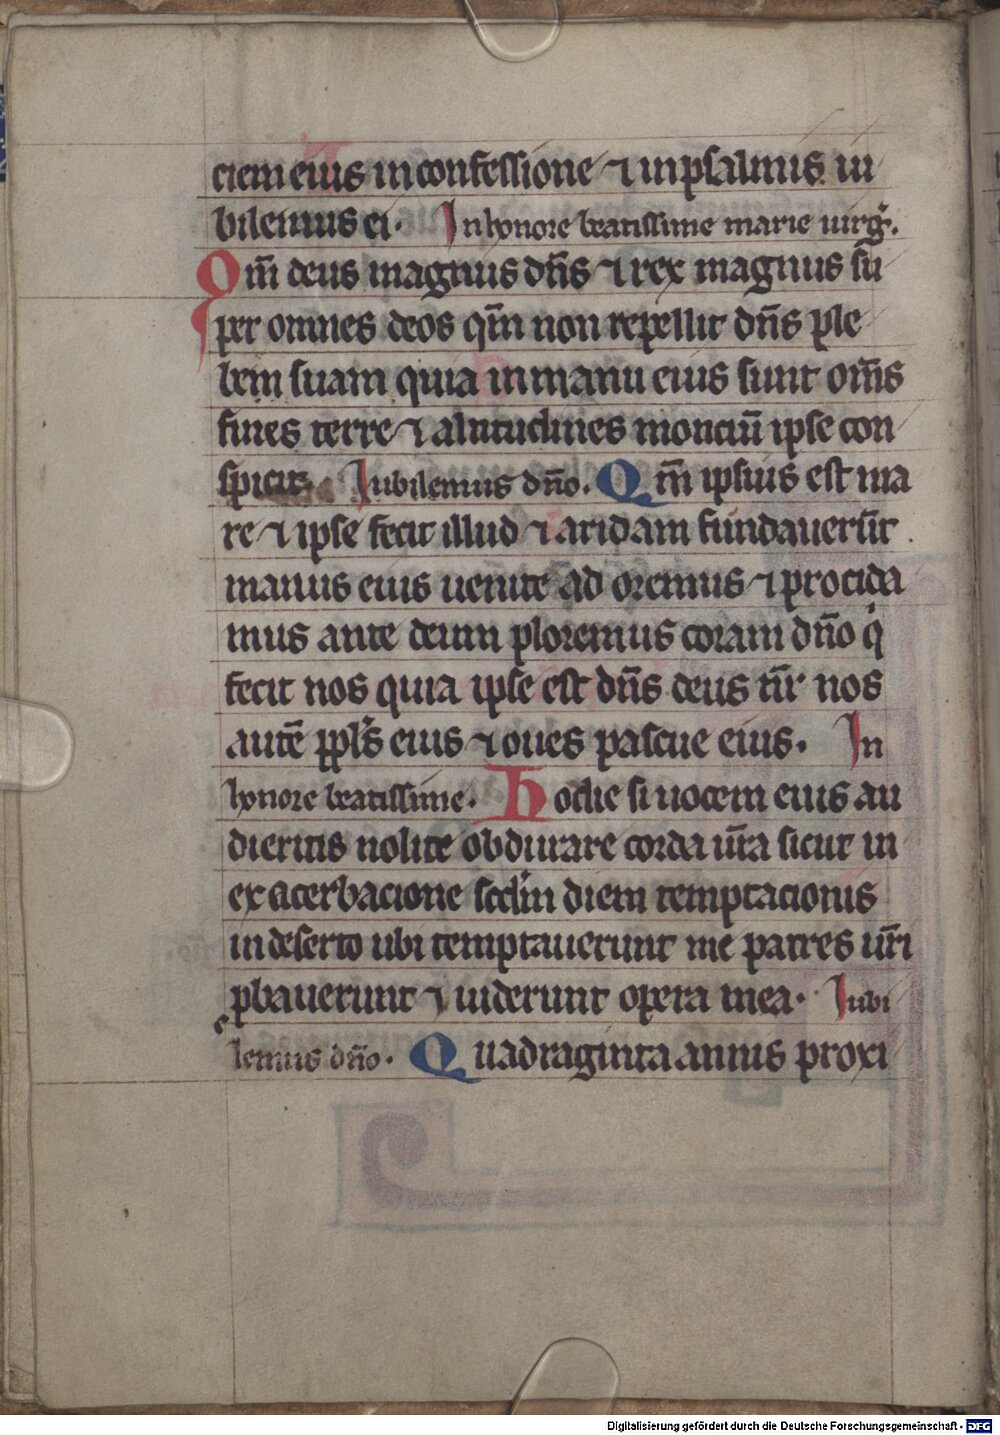 ciem eius in confessione ⁊ in psalmis iu
bilemus ei. In honore beatissime marie uirg̃.
Qm̄ deus magnus dn̄s ⁊ rex magnus su
per omnes deos qm̄ non repellit dn̄s ple
bem suam quia in manu eius sunt om̄s
fines terre ⁊ altitudines monciū ipse con
spicit. Iubilemus dn̄o. Qm̄ ipsius est ma
re ⁊ ipse fecit illud ⁊ aridam fundauerūt
manus eius uenite ad oremus ⁊ procida
mus ante deum ploremus coram dn̄o qͥ
fecit nos quia ipse est dn̄s deus nr̄ nos
autē ppl̄s eius ⁊ oues pascue eius. In
honore beatissime. Hodie si uocem eius au
dieritis nolite obdurare corda ur̄a sicut in
exacerbacione scdm̄ diem temptacionis
in deserto ubi temptauerunt me patres ur̄i
ꝓbauerunt ⁊ uiderunt opera mea. Iubi
lemus dn̄o. Quadraginta annis proxi
Digitalisierung gefördert durch die Deutsche Forschungsgemeinschaft - DFG